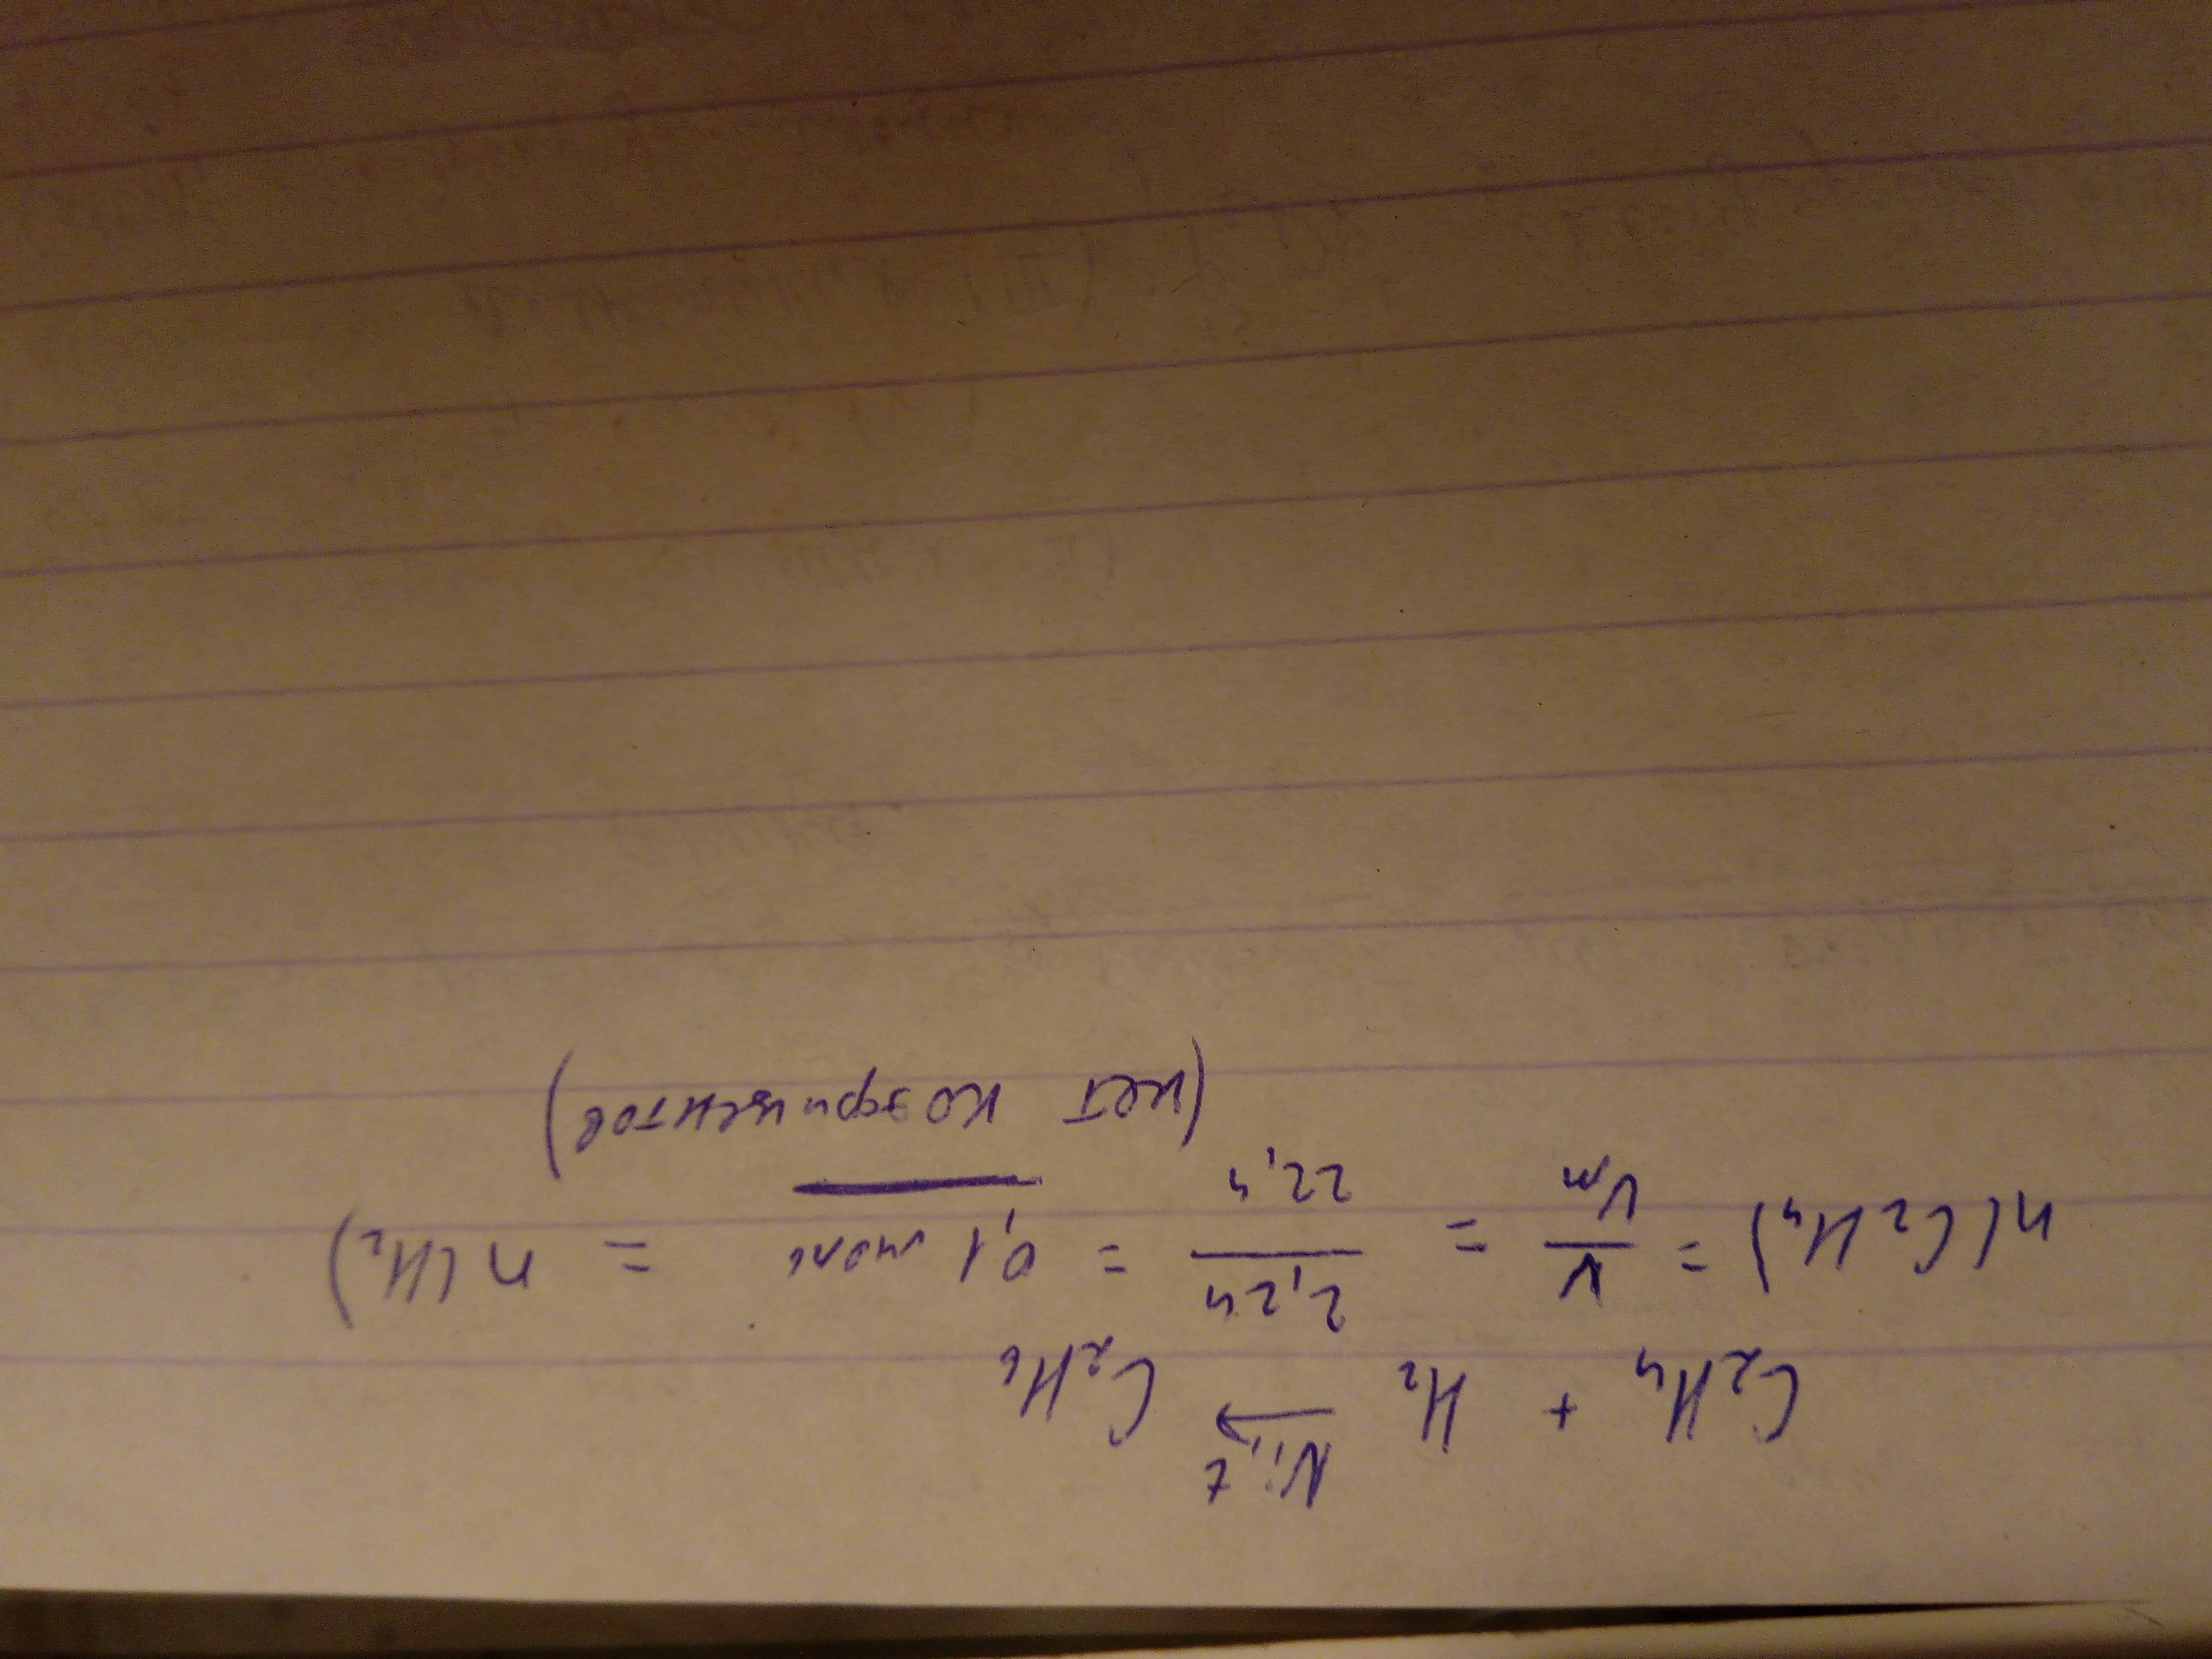 Ni, t
C₂H₄ + H₂ → C₂H₆
n(C₂H₄) = V/Vm = 2,24/22,4 = 0,1 моль = n(H₂)
(нет коэфициентов)